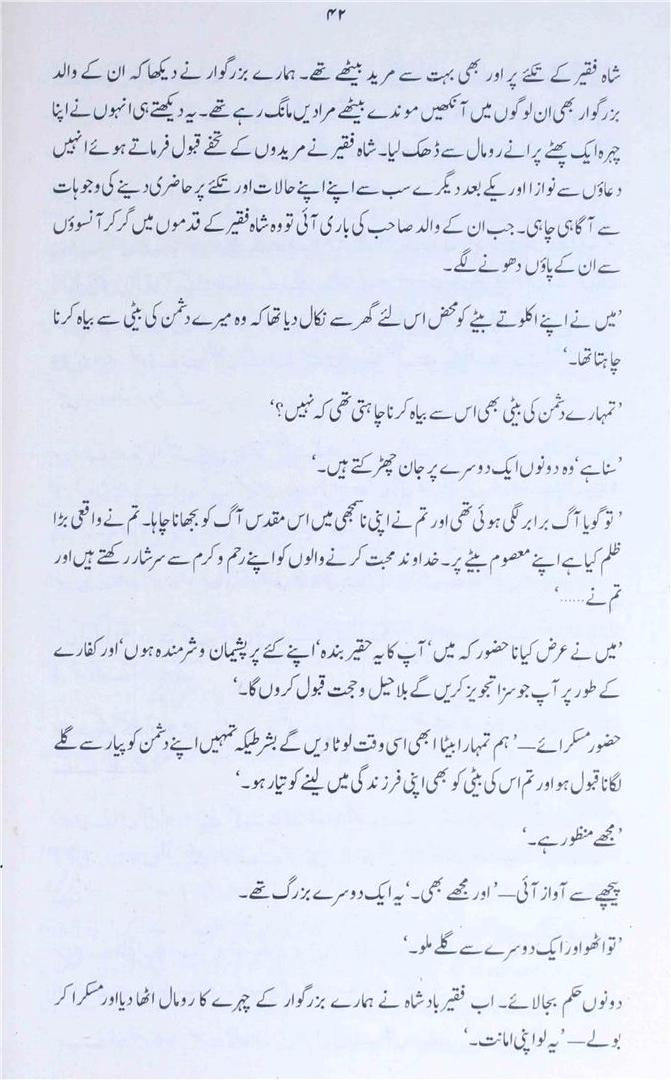 ۴۲
شاہ فقیر کے تکئے پر اور بھی بہت سے مرید بیٹھے تھے۔ ہمارے بزرگوار نے دیکھا کہ ان کے والد
بزرگوار بھی ان لوگوں میں آنکھیں موندے بیٹھے مرادیں مانگ رہے تھے۔ یہ دیکھتے ہی انہوں نے اپنا
چہرہ ایک پھٹے پرانے رومال سے ڈھک لیا۔ شاہ فقیر نے مریدوں کے تحفے قبول فرماتے ہوئے انہیں
دعاؤں سے نوازا اور یکے بعد دیگرے سب سے اپنے اپنے حالات اور تکئے پر حاضری دینے کی وجوہات
سے آگاہی چاہی۔ جب ان کے والد صاحب کی باری آئی تو وہ شاہ فقیر کے قدموں میں گر کر آنسوؤں
سے ان کے پاؤں دھونے لگے۔
’میں نے اپنے اکلوتے بیٹے کو محض اس لئے گھر سے نکال دیا تھا کہ وہ میرے دشمن کی بیٹی سے بیاہ کرنا
چاہتا تھا۔‘
’تمہارے دشمن کی بیٹی بھی اس سے بیاہ کرنا چاہتی تھی کہ نہیں؟‘
’سنا ہے‘ وہ دونوں ایک دوسرے پر جان چھڑکتے ہیں۔‘
’تو گویا آگ برابر لگی ہوئی تھی اور تم نے اپنی ناسمجھی میں اس مقدس آگ کو بجھانا چاہا۔ تم نے واقعی بڑا
ظلم کیا ہے اپنے معصوم بیٹے پر۔ خداوند محبت کرنے والوں کو اپنے رحم و کرم سے سرشار رکھتے ہیں اور
تم نے......‘
’میں نے عرض کیا نا حضور کہ میں‘ آپ کا یہ حقیر بندہ‘ اپنے کئے پر پشیمان و شرمندہ ہوں‘ اور کفارے
کے طور پر آپ جو سزا تجویز کریں گے بلا حیل و حجت قبول کروں گا۔‘
حضور مسکرائے—’ہم تمہارا بیٹا ابھی اسی وقت لوٹا دیں گے بشرطیکہ تمہیں اپنے دشمن کو پیار سے گلے
لگانا قبول ہو اور تم اس کی بیٹی کو بھی اپنی فرزندگی میں لینے کو تیار ہو۔‘
’مجھے منظور ہے۔‘
پیچھے سے آواز آئی—’اور مجھے بھی۔‘ یہ ایک دوسرے بزرگ تھے۔
’تو اٹھو اور ایک دوسرے سے گلے ملو۔‘
دونوں حکم بجا لائے۔ اب فقیر بادشاہ نے ہمارے بزرگوار کے چہرے کا رومال اٹھا دیا اور مسکرا کر
بولے—’یہ لو اپنی امانت۔‘